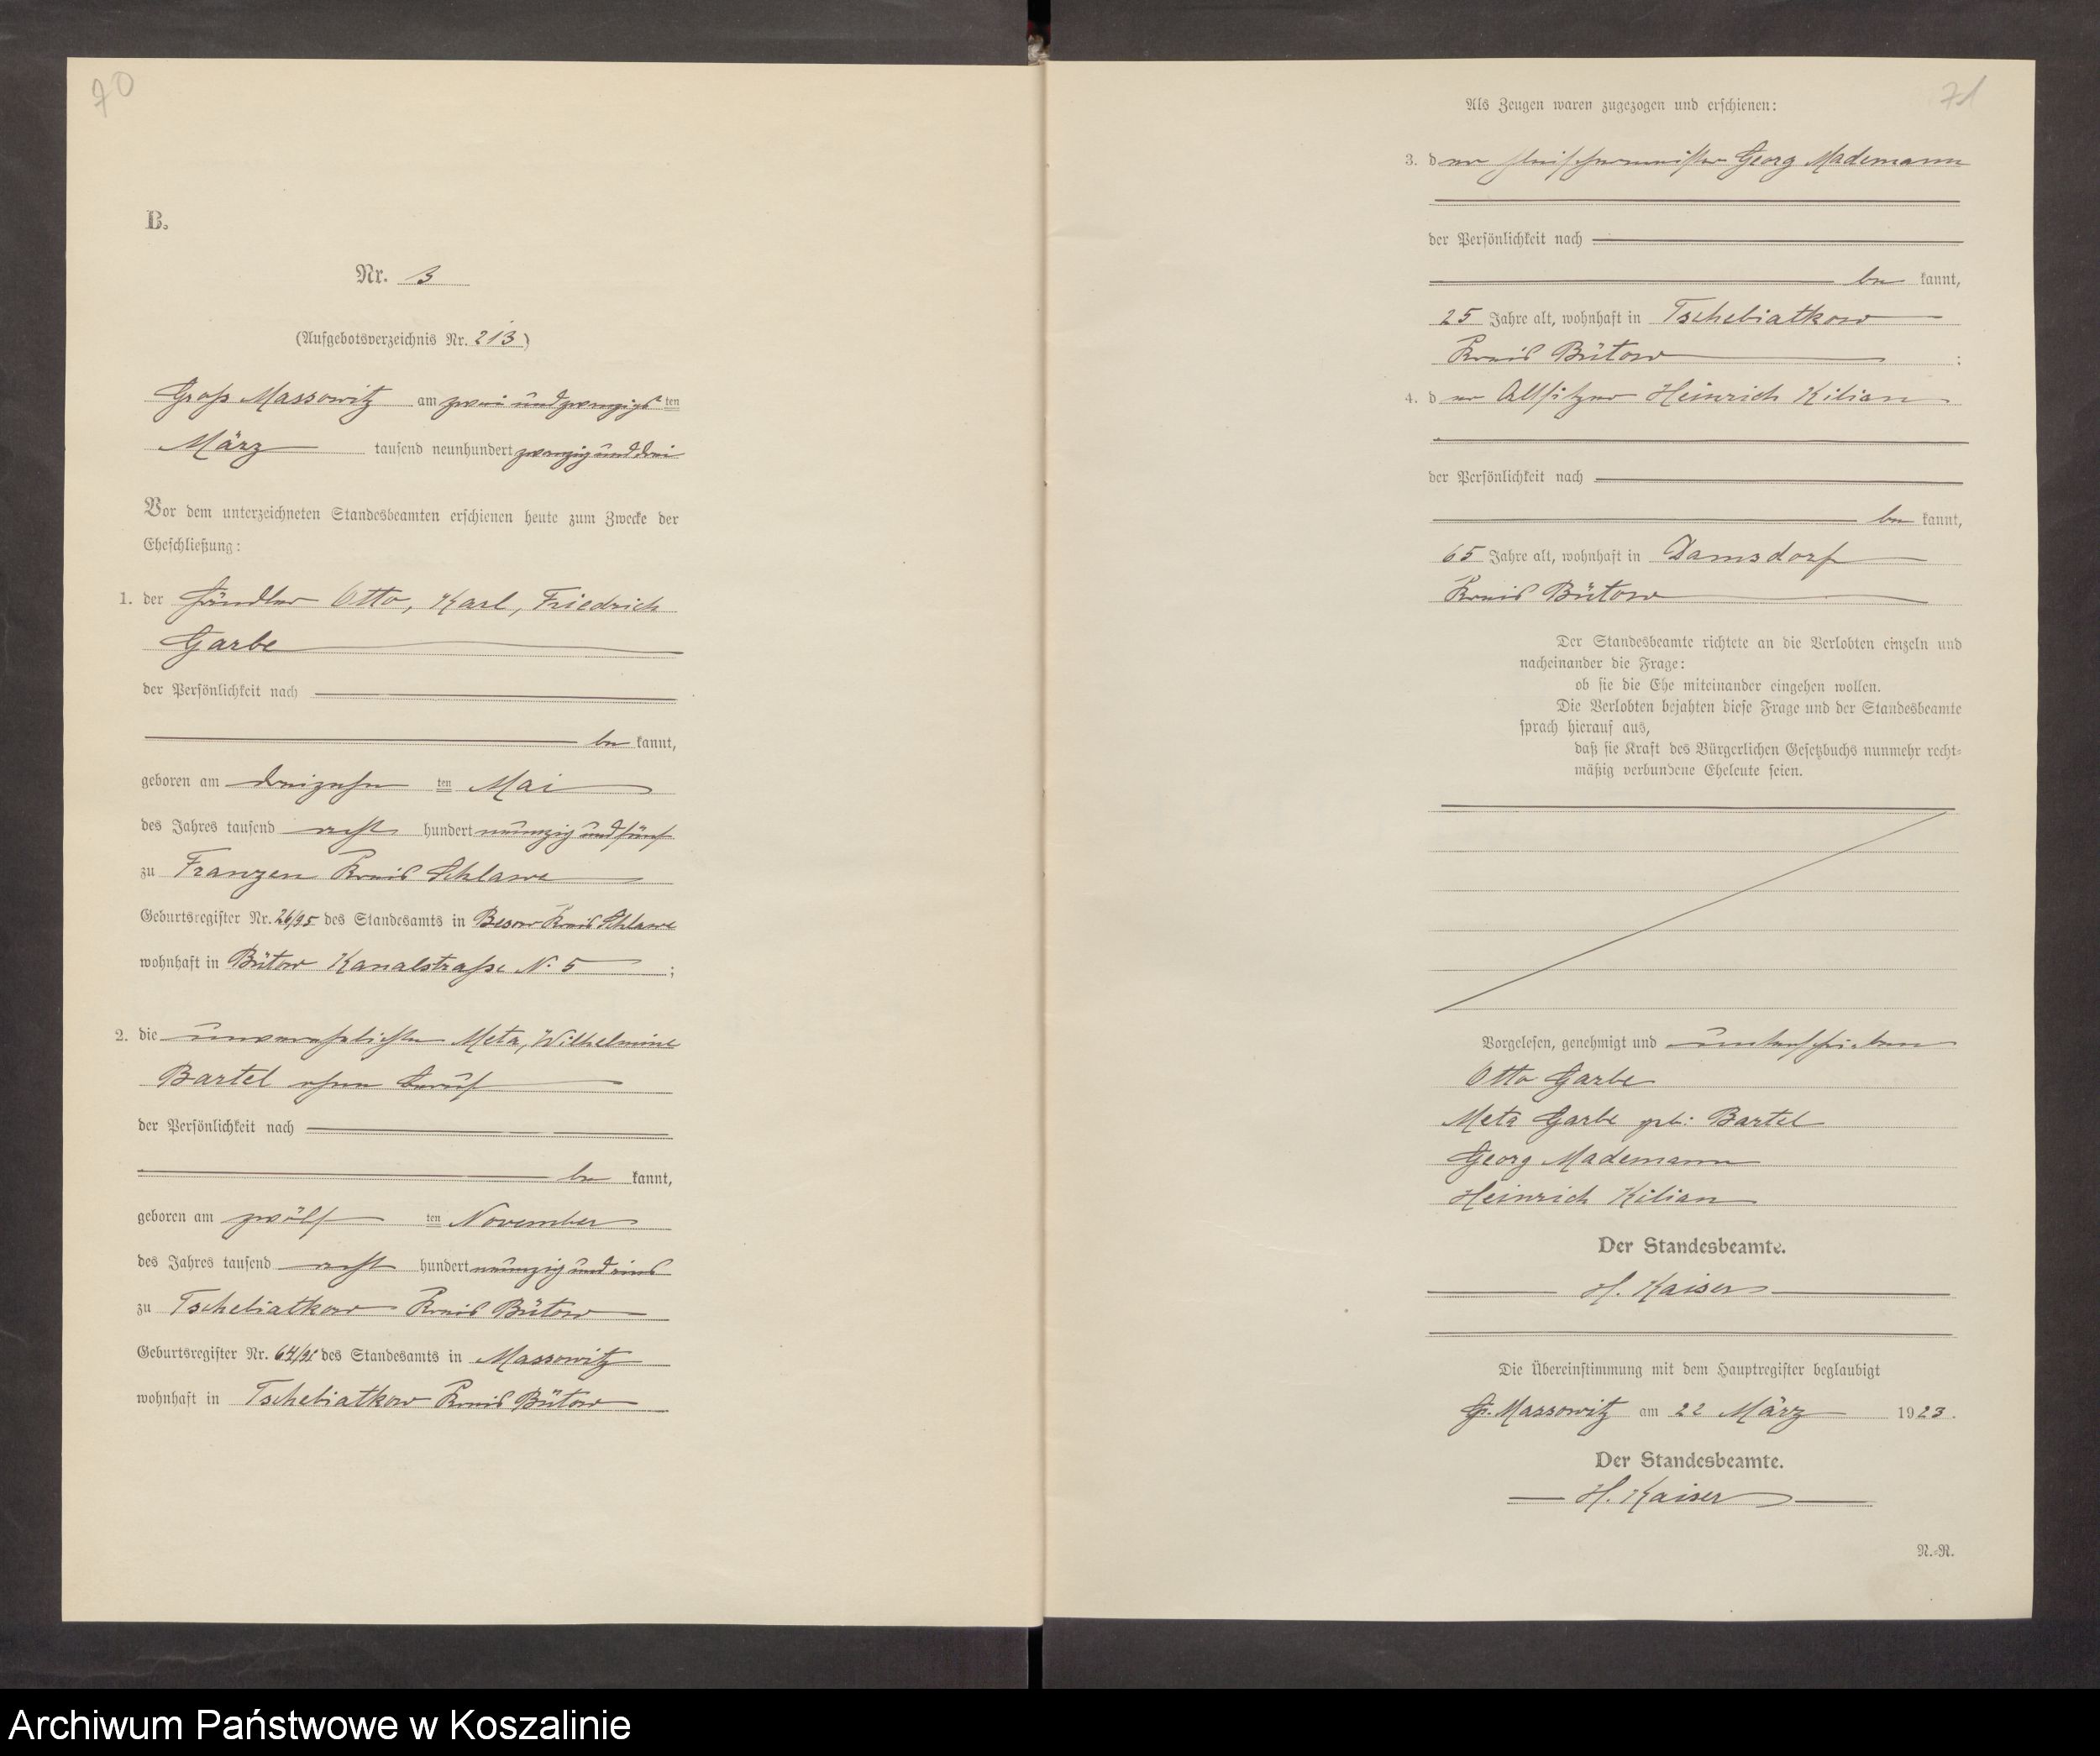 70
B.
Nr. 3
(Aufgebotsverzeichnis Nr. 213)
Groß Massowitz am zwei und zwanzigsten
März tausend neunhundert zwanzig und drei
Vor dem unterzeichneten Standesbeamten erschienen heute zum Zwecke der
Eheschließung:
1. der Händler Otto, Karl, Friedrich
Garbe
der Persönlichkeit nach
be kannt,
geboren am dreizehn ten Mai
des Jahres tausend acht hundert neunzig und fünf
zu Franzen Kreis Schlawe
Geburtsregister Nr. 26/95 des Standesamts in Besow Kreis Schlawe
wohnhaft in Bütow Kanalstraße N. 5 ;
2. die unverehelichte Meta, Wilhelmine
Bartel ohne Beruf
der Persönlichkeit nach
be kannt,
geboren am zwölf ten November
des Jahres tausend acht hundert neunzig und eins
zu Tschebiatkow Kreis Bütow
Geburtsregister Nr. 64/91 des Standesamts in Massowitz
wohnhaft in Tschebiatkow Kreis Bütow
71
Als Zeugen waren zugezogen und erschienen:
3. der Fleischermeister Georg Mademann
der Persönlichkeit nach
be kannt,
25 Jahre alt, wohnhaft in Tschebiatkow
Kreis Bütow ;
4. der Altsitzer Heinrich Kilian
der Persönlichkeit nach
be kannt,
65 Jahre alt, wohnhaft in Damsdorf
Kreis Bütow
Der Standesbeamte richtete an die Verlobten einzeln und
nacheinander die Frage:
ob sie die Ehe miteinander eingehen wollen.
Die Verlobten bejahten diese Frage und der Standesbeamte
sprach hierauf aus,
daß sie Kraft des Bürgerlichen Gesetzbuchs nunmehr recht-
mäßig verbundene Eheleute seien.
Vorgelesen, genehmigt und unterschrieben
Otto Garbe
Meta Garbe geb: Bartel
Georg Mademann
Heinrich Kilian
Der Standesbeamte.
H. Kaiser
Die Übereinstimmung mit dem Hauptregister beglaubigt
Gr. Massowitz am 22 März 1923.
Der Standesbeamte.
H. Kaiser
N.-R.
Archiwum Państwowe w Koszalinie